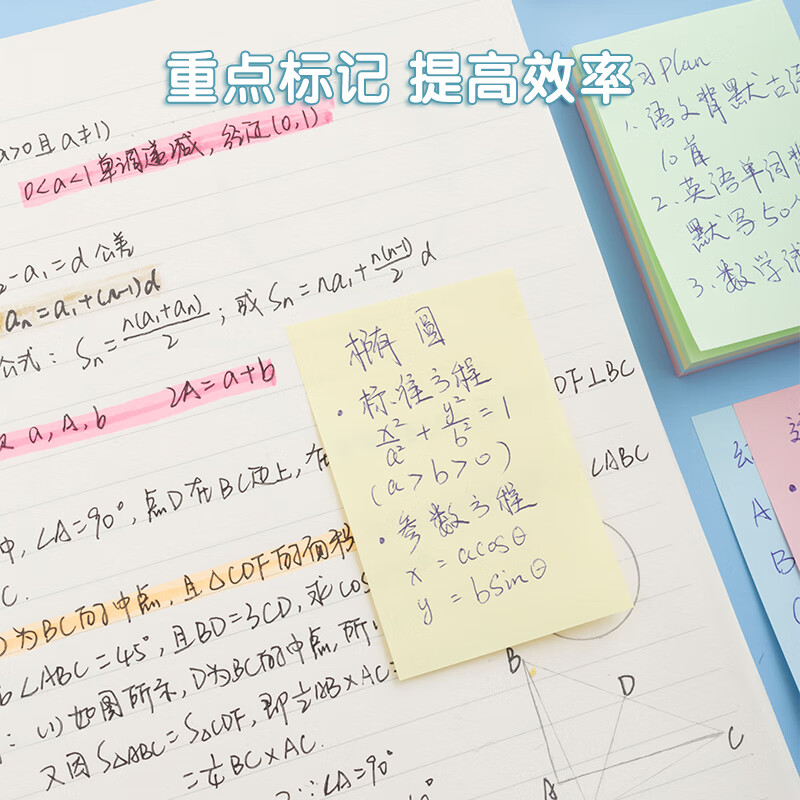 重点标记 提高效率
a>0且a≠1)
0<a<1单调递减, 经过(0,1)
-a₁=d 公差
aₙ=a₁+(n-1)d
公式: Sₙ=n(a₁+aₙ)/2 ; 或 Sₙ=na₁+n(n-1)/2 d
a, A, b 2A=a+b
中, ∠A=90°, 点D在BC边上, 在
C.
为BC的中点, 且△CDF的面积
∠ABC=45°, 且BD=3CD, 求cos
: (1)如图所示, D为BC的中点, 所以
又因S△ABC=S△CDF, 即½AB×AC=
=¼BC×AC.
∵∠A=90°
DF⊥BC
∠ABC
椭圆
·标准方程
x²/a²+y²/b²=1
(a>b>0)
·参数方程
x=acosθ
y=bsinθ
B
D
C
A
习Plan
1、语文背默古诗
10首
2、英语单词背
默写50个
3、数学
A
B